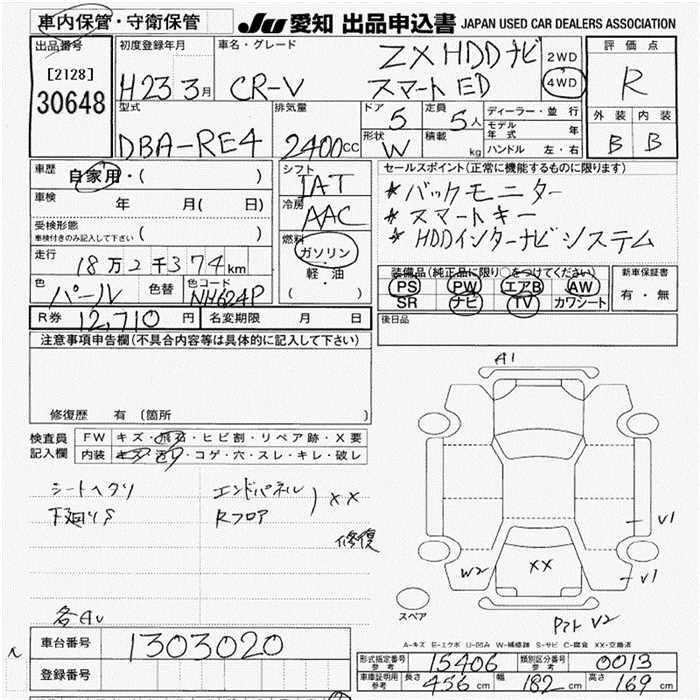 車内保管・守衛保管 JU 愛知 出品申込書 JAPAN USED CAR DEALERS ASSOCIATION
出品番号 [2128] 30648
初度登録年月 H23 3月
車名・グレード CR-V ZX HDDナビ スマートED
2WD 4WD
評価点 R
外装 B 内装 B
型式 DBA-RE4
排気量 2400cc
ドア 5 定員 5人
形状 W 積載 kg
ディーラー・並行
モデル年式 年
ハンドル 左・右
車歴 自家用・( )
車検 年 月( 日)
受検形態 ( )
車検付きのみ記入して下さい
走行 18万2千374km
色 パール 色替 色コード NH624P
シフト IAT
冷房 AAC
燃料 ガソリン・軽・油 ( )
セールスポイント(正常に機能するものに限ります)
*バックモニター
*スマートキー
*HDDインターナビシステム
装備品(純正品に限り○をつけてください)
PS PW エアB AW
SR ナビ TV カワシート
新車保証書 有・無
R券 12,710円 名変期限 月 日
後日品
注意事項申告欄(不具合内容等は具体的に記入して下さい)
修復歴 有 (箇所 )
検査員記入欄
FW キズ・飛石・ヒビ割・リペア跡・X要
内装 キズ・汚れ・コゲ・穴・スレ・キレ・破レ
シートヘタリ エンドパネル
下廻りS Rフロア ) XX
修復
各AU
A1
V1
V1
W2
XX
スペア
V2
A-キズ E-エクボ U-凹み W-補修跡 S-サビ C-腐食 XX-交換済
車台番号 1303020
登録番号
形式指定番号 参考 15406 類別区分番号 参考 0013
車庫証明用 参考 長さ 456cm 幅 182cm 高さ 169cm